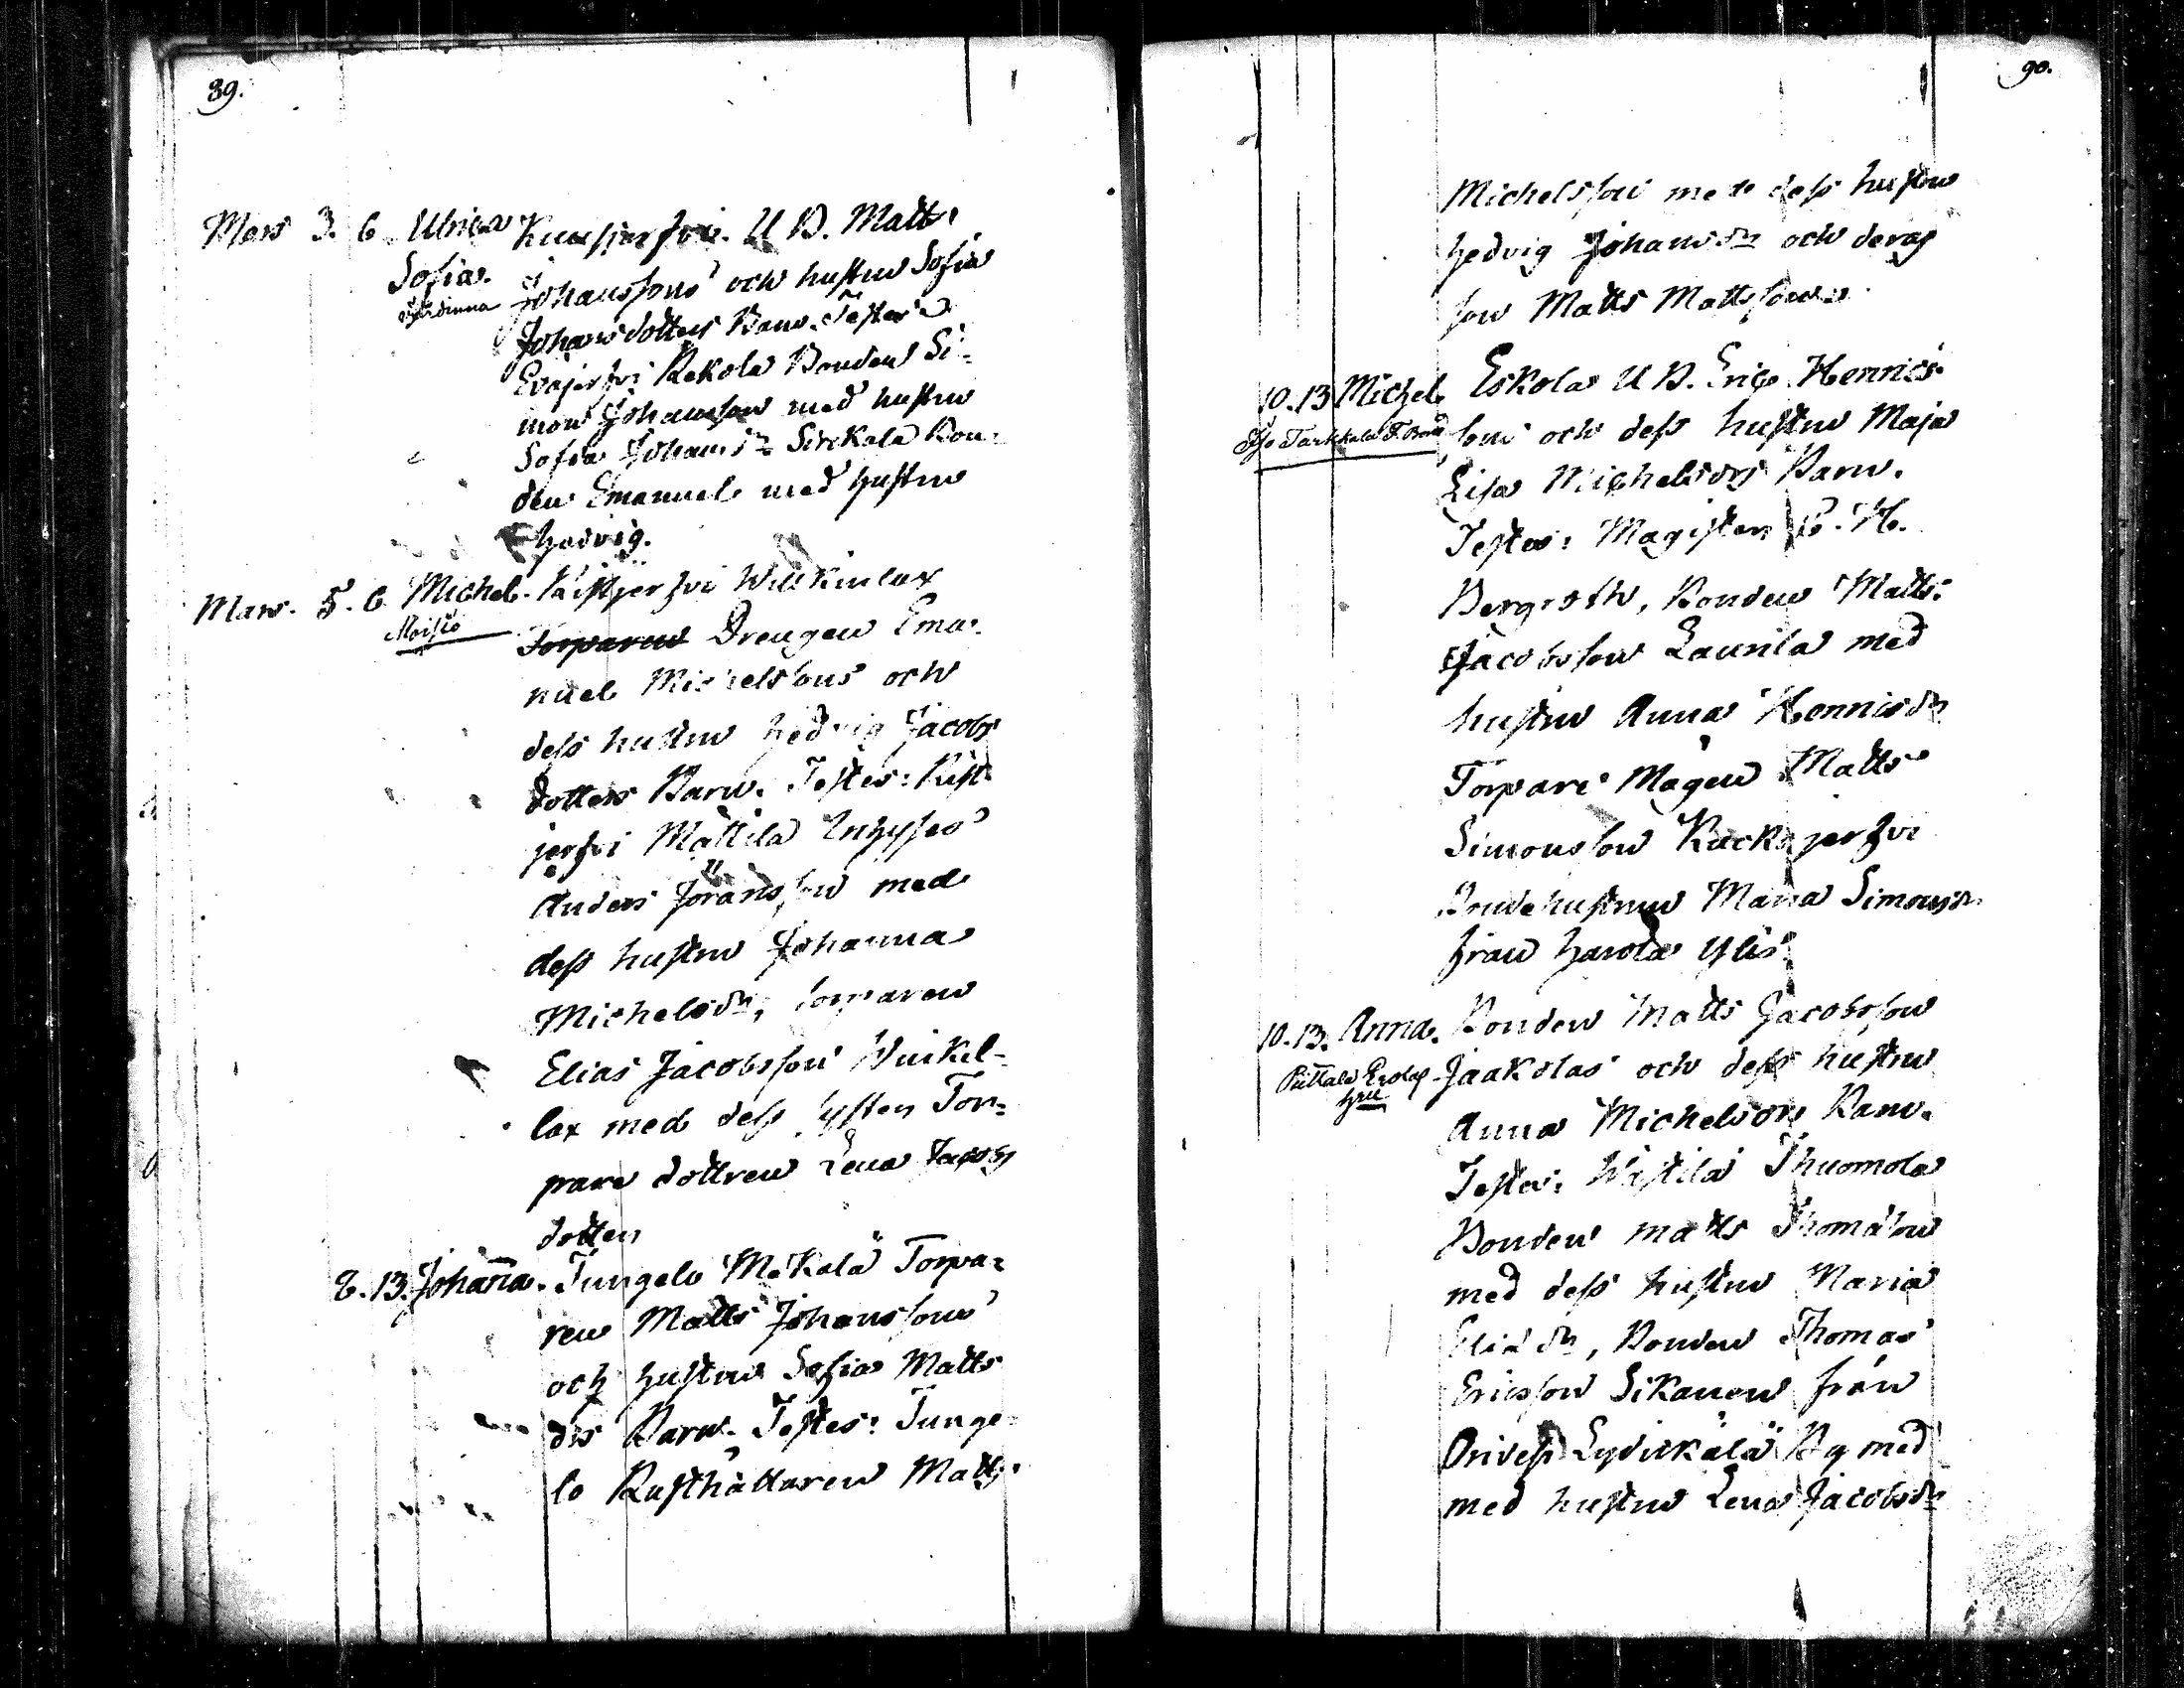 89.
Mars 3. 6. Ulrica Kuusjerfvi. U B. Matts
Sofia. Johanssons och hustru Sofia
Johansdotters Barn. Testes:
Eväjerfvi Rekola Bonden Si-
mon Johansson med hustru
Sofia Johansdr Sirkala Bon-
den Emanuel med hustru
Hedvig.
Mars. 5. 6. Michel. Kistjerfvi Willkinlax
Moisio
Torparen Drengen Ema-
nuel Michelssons och
dess hustru Hedvig Jacobs
dotters Barn. Testes: Kist
jerfvi Mattila Inhyses
Anders Jöransson med
dess hustru Johanna
Michelsdr, torparen
Elias Jacobsson Winkel-
lax med dess syster Tor-
pare dottren Lena Jacobs
dotter
8. 13. Johanna. Jungelo Mäkälä Torpa-
ren Matts Johanssons
och hustrus Sofia Matts
drs Barn. Testes: Junge-
lo Rusthållaren Matts
90.
Michelsson med dess hustru
Hedvig Johansdr och deras
son Matts Mattsson.
10. 13 Michel. Eskola U B. Eric Henrics
son och dess hustru Maja
Lisa Michelsdrs Barn.
Testes: Magister B. H.
Bergroth, Bonden Matts
Jacobsson Laurila med
hustru Anna Henricsdr
Torpare Mågen Matts
Simonsson Kackejerfvi
Bondehustrun Maria Simonsdr
från Harola Ylis.
10. 13. Anna. Bonden Matts Jacobsson
Jaakolas och dess hustru
Anna Michelsdrs Barn.
Testes: Wästilä Thuomola
Bonden Matts Thomasson
med dess hustru Maria
Eliædr, Bonden Thomas
Ericsson Sikanen från
Orivesi Lydickälä By med
med hustru Lena Jacobsdr